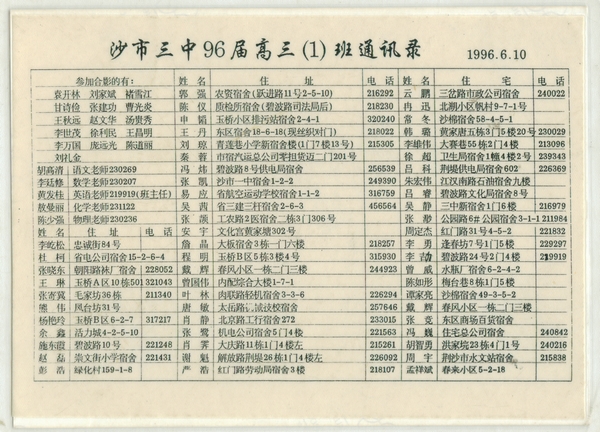 沙市三中96届高三(1)班通讯录 1996.6.10
参加合影的有： 姓名 住址 电话 姓名 住宅 电话
袁开林 刘家斌 褚雪江 郭强 农贸宿舍(跃进路11号2-5-10) 216292 云鹏 三岔路市政公司宿舍 240022
甘诗俭 张建功 曹光炎 陈仪 质检所宿舍(碧波路司法局后) 218230 冉迅 北湖小区帆村9-7-1号
王秋远 赵文华 汤贵秀 申韬 玉桥小区排污站宿舍2-4-1 320240 常冬 沙棉宿舍58-4-5-1
李世茂 徐利民 王昌明 王丹 东区宿舍18-6-18(现丝织对门) 韩璐 黄家唐五栋3门5楼20号 230029
李万国 庞远光 陈道丽 刘琼 青莲巷小学新宿舍楼(1门7楼13号) 215305 李维伟 大赛巷55栋2门4楼 271061
刘礼金 秦蓉 市宿汽运总公司零担货迈二门201号 徐超 卫生局宿舍1幢4楼2号 239343
胡高清 语文老师230269 冯炜 碧波路8号供电局宿舍 256539 吕科 荆堤供电局宿舍602 226369
李廷修 数学老师230207 张凯 沙市一中宿舍1-2-2 249390 朱宏伟 江汉南路石油宿舍九楼
黄发桂 英语老师219919(班主任) 易应 省航运动学校宿舍1-1-2 316759 吕睿 碧波路文化局宿舍8号
敖曼丽 化学老师231122 吴茜 省三建三积宿舍2-6-3 456564 吴静 三中新宿舍1门6楼 216979
陈少强 物理老师230236 张颜 工农路2医宿舍二栋3门306号 张静 公园路6#公园宿舍3-1-1 211984
姓名 住址 电话 安宇 文化宫黄家塘302号 周定杰 红门路31号4-5-2 231832
李屹松 忠诚街84号 詹晶 大板宿舍3栋一门六楼 218257 李勇 逢春坊7号1门5楼 229297
杜柯 省电公司宿舍15-2-6-4 程明 玉桥B区5栋3楼4号 315930 李吉 碧波路24号2门4楼 219902
张晓东 朝阳路袜厂宿舍 228052 戴辉 春风小区一栋二门三楼 244923 曾威 水瓶厂宿舍6-2-4-2
王琳 玉桥A区10栋501 321043 曾国伟 内配综合大楼1-7-1 陈如彤 梅台巷8栋1门5楼
张寄冀 毛家坊36栋 211340 叶林 肉联路轻机宿舍3-3-6 226294 谭家亮 沙棉宿舍49-3-5-2
熊伟 凤台坊31号 唐敏 257646 戴辉 春风小区一栋二门三楼
杨艳玲 玉桥B区6-2-7 317217 肖静 北京路工行宿舍272 233015 张竞 东区商场百货宿舍
余鑫 活力城4-2-5-10 张鹭 机电公司宿舍5门4楼 221563 冯巍 住宅总公司宿舍 240842
施东霞 碧波路10号 221248 肖霁 大庆路11栋1门4楼左 215261 胡智勇 洪家垸23栋4门1号 240216
赵磊 崇文街小学宿舍 221431 谢魁 解放路荆堤26栋1门4楼左 226092 周宇 荆沙市水文站宿舍 215838
彭浩 绿化村159-1-8 严浩 红门路劳动局宿舍3楼 218107 孟祥斌 春来小区5-2-18